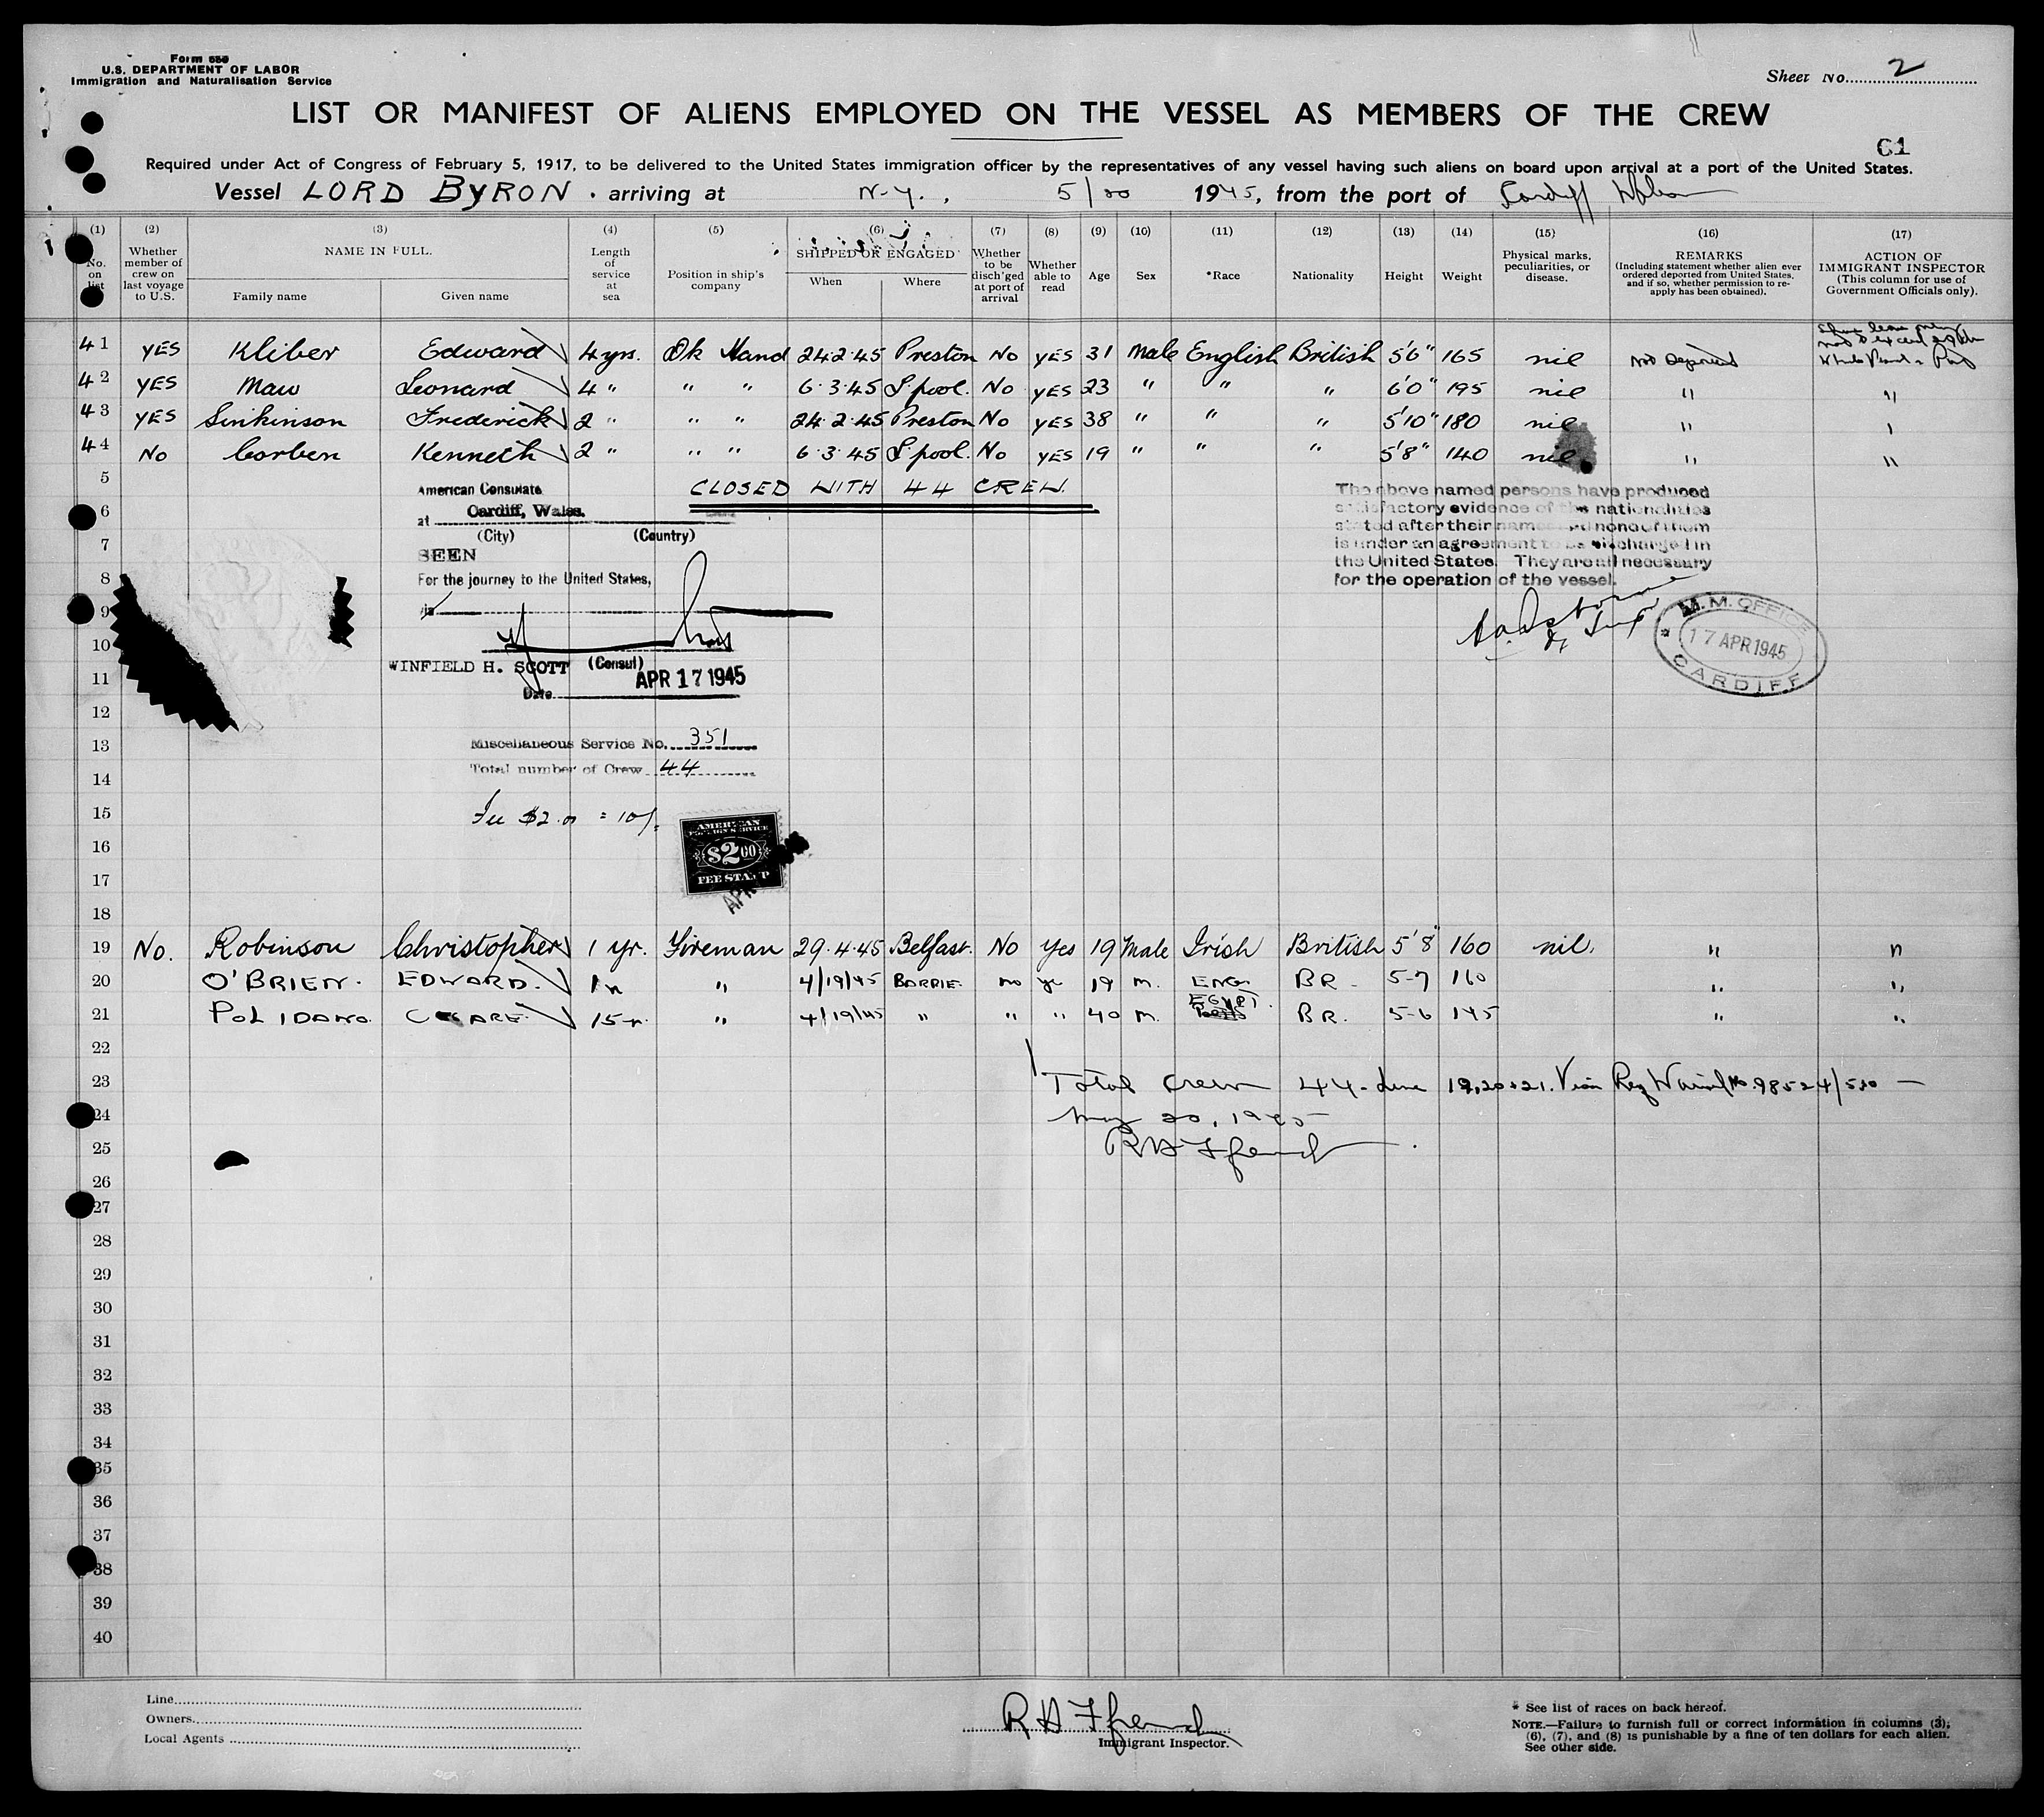 Form 680
U.S. DEPARTMENT OF LABOR
Immigration and Naturalisation Service
Sheet No. 2
LIST OR MANIFEST OF ALIENS EMPLOYED ON THE VESSEL AS MEMBERS OF THE CREW
C1
Required under Act of Congress of February 5, 1917, to be delivered to the United States immigration officer by the representatives of any vessel having such aliens on board upon arrival at a port of the United States.
Vessel LORD BYRON. arriving at N.Y., 5/20 1945, from the port of Cardiff Wales
(1) (2) (3) (4) (5) (6) (7) (8) (9) (10) (11) (12) (13) (14) (15) (16) (17)
No. on list
Whether member of crew on last voyage to U.S.
NAME IN FULL.
Family name
Given name
Length of service at sea
Position in ship's company
SHIPPED OR ENGAGED
When
Where
Whether to be disch'ged at port of arrival
Whether able to read
Age
Sex
*Race
Nationality
Height
Weight
Physical marks, peculiarities, or disease.
REMARKS
(Including statement whether alien ever ordered deported from United States, and if so, whether permission to re-apply has been obtained).
ACTION OF IMMIGRANT INSPECTOR
(This column for use of Government Officials only).
41 YES Kliber Edward 4 yrs. Dk Hand 24.2.45 Preston No YES 31 Male English British 5'6" 165 nil Not Deported
42 YES Maw Leonard 4 " " " 6.3.45 L'pool. No YES 23 " " " 6'0" 195 nil " "
43 YES Sinkinson Frederick 2 " " " 24.2.45 Preston No YES 38 " " " 5'10" 180 nil " "
44 No Corben Kenneth 2 " " " 6.3.45 L'pool. No YES 19 " " " 5'8" 140 nil " "
5 CLOSED WITH 44 CREW.
American Consulate
at Cardiff, Wales.
(City) (Country)
SEEN
For the journey to the United States,
WINFIELD H. SCOTT (Consul)
APR 17 1945
Date
The above named persons have produced
satisfactory evidence of the nationalities
stated after their names and none of them
is under an agreement to be discharged in
the United States. They are all necessary
for the operation of the vessel.
M.M. OFFICE
17 APR 1945
CARDIFF
6
7
8
9
10
11
12
13
Miscellaneous Service No. 351
14
Total number of Crew 44
15
Fee $2.00 = 10/-
AMERICAN
FOREIGN SERVICE
$2.00
FEE STAMP
APR
16
17
18
19 No. Robinson Christopher 1 yr. Fireman 29.4.45 Belfast. No Yes 19 Male Irish British 5'8" 160 nil. " "
20 O'BRIEN. EDWARD. 1 " " 4/19/45 BARRIE. no 19 M. ENG BR. 5-7 160 " "
21 POLIDANO. 15 " " 4/19/45 " " " 40 M. EGYPT. BR. 5-6 145 " "
22
23 Total Crew 44 - Line 19, 20 + 21. Visa Reg Waived No 98524/520 —
24 May 20, 1945
25
26
27
28
29
30
31
32
33
34
35
36
37
38
39
40
Line
Owners
Local Agents
Immigrant Inspector.
* See list of races on back hereof.
NOTE.—Failure to furnish full or correct information in columns (3), (6), (7), and (8) is punishable by a fine of ten dollars for each alien.
See other side.